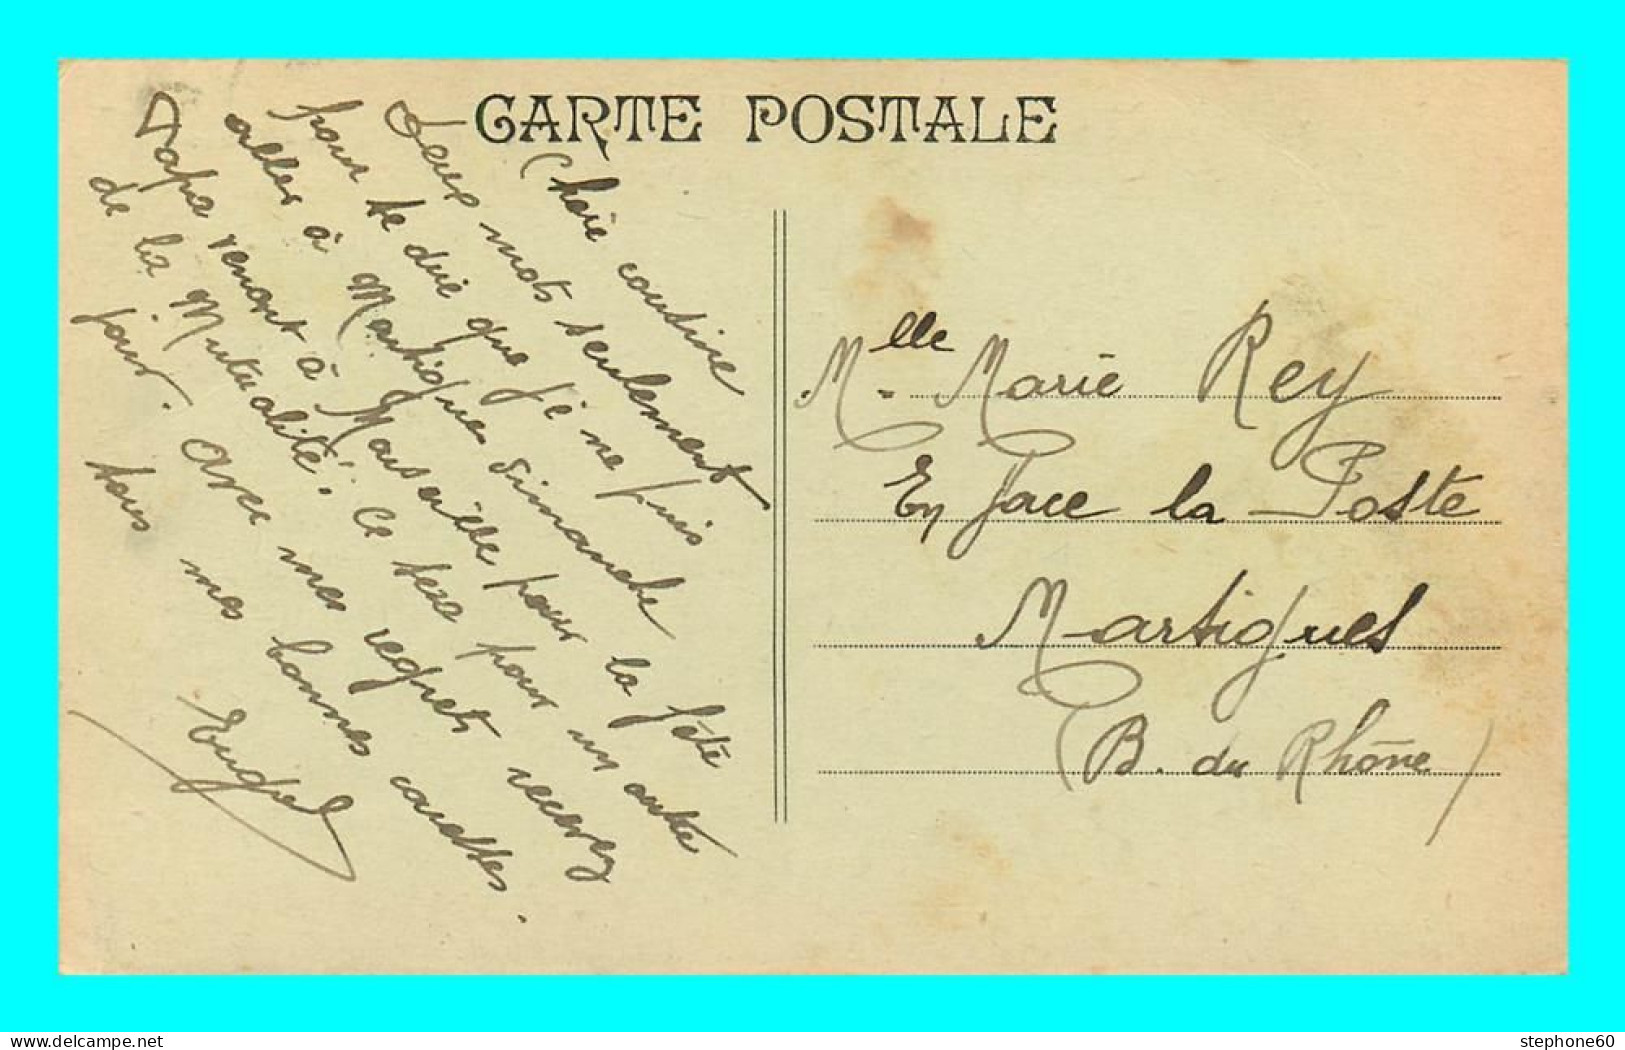 CARTE POSTALE
Chère cousine
Deux mots seulement
pour te dire que je ne puis
aller à Martigues Dimanche
Papa venant à Marseille pour la fête
de la Mutualité. Ce sera pour un autre
jour. Avec mes regrets recevez
tous mes bonnes caresses.
Mlle Marie Rey
En face la Poste
Martigues
(B. du Rhône)
stephone60